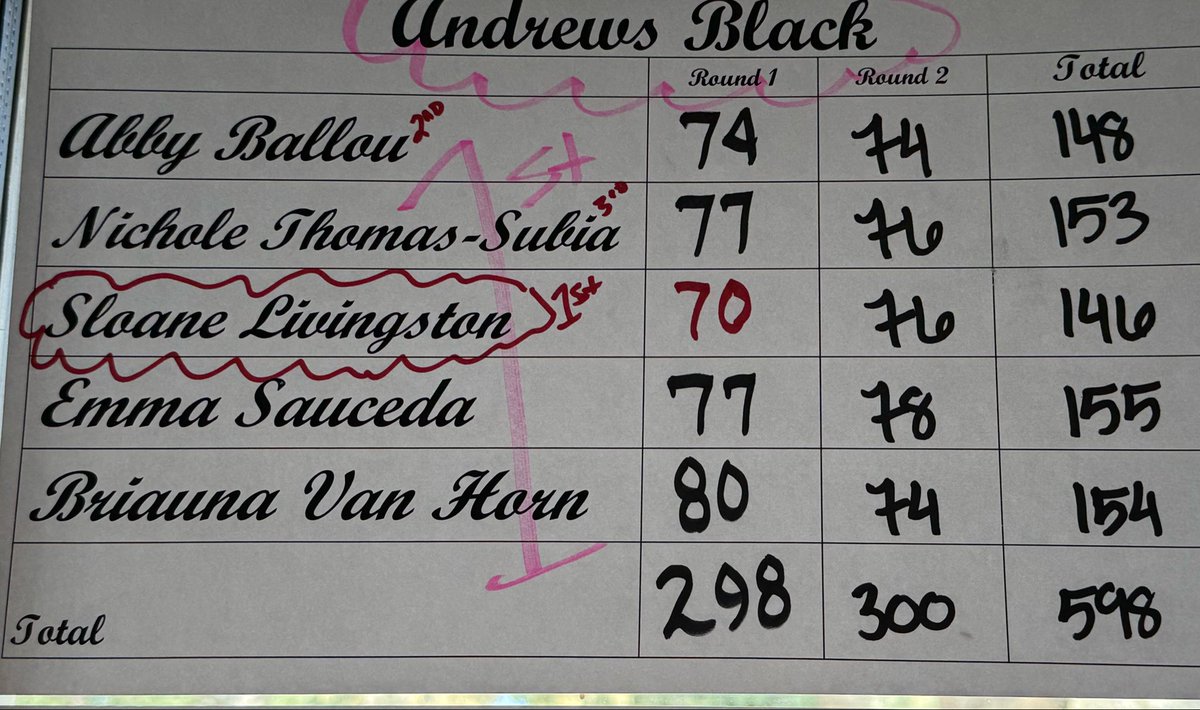 Andrews Black
Round 1 Round 2 Total
Abby Ballou 2nd 74 74 148
1st
Nichole Thomas-Subia 3rd 77 76 153
Sloane Livingston 1st 70 76 146
Emma Sauceda 77 78 155
Briauna Van Horn 80 74 154
Total 298 300 598